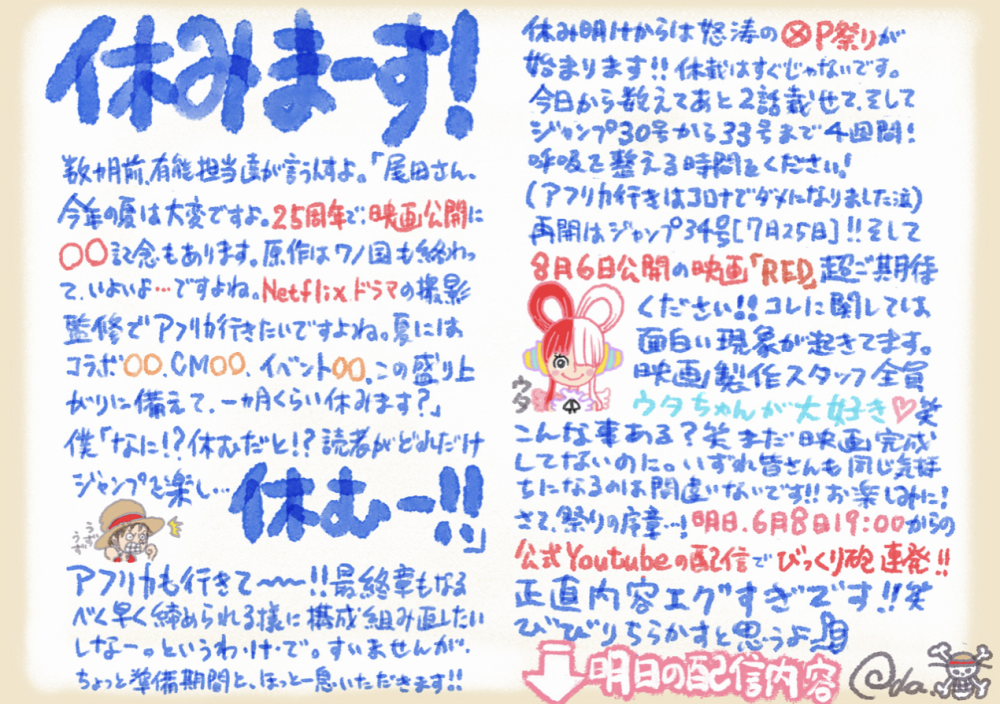 休みまーす!
数ヶ月前、有能担当達が言うんすよ。「尾田さん、
今年の夏は大変ですよ。25周年で、映画公開に
〇〇記念もあります。原作はワノ国も終わっ
て、いよいよ…ですよね。Netflixドラマの撮影
監修でアフリカ行きたいですよね。夏には
コラボ〇〇、CM〇〇、イベント〇〇。この盛り上
がりに備えて、一ヵ月くらい休みます?」
僕「なに!?休むだと!?読者がどれだけ
ジャンプを楽し…休むー!!」
うずうず
アフリカも行きて〜〜!!最終章もなる
べく早く締められる様に構成組み直したい
しなー。というわ・け・で。すいませんが、
ちょっと準備期間と、ほっと一息いただきます!!
休み明けからは怒涛の㊇P祭りが
始まります!!休載はすぐじゃないです。
今日から数えてあと2話載せて、そして
ジャンプ30号から33号まで4週間!
呼吸を整える時間をください!
(アフリカ行きはコロナでダメになりました泣)
再開はジャンプ34号[7月25日]!!そして
8月6日公開の映画「RED」超ご期待
ください!!コレに関しては
面白い現象が起きてます。
映画製作スタッフ全員
ウタちゃんが大好き♡笑
ウタ
こんな事ある?笑 まだ映画完成
してないのに。いずれ皆さんも同じ気持
ちになるのは間違いないです!!お楽しみに!
さて、祭りの序章…!明日、6月8日19:00からの
公式Youtubeの配信でびっくり砲連発!!
正直内容エグすぎです!!笑
びびりちらかすと思うよ
明日の配信内容
@da.